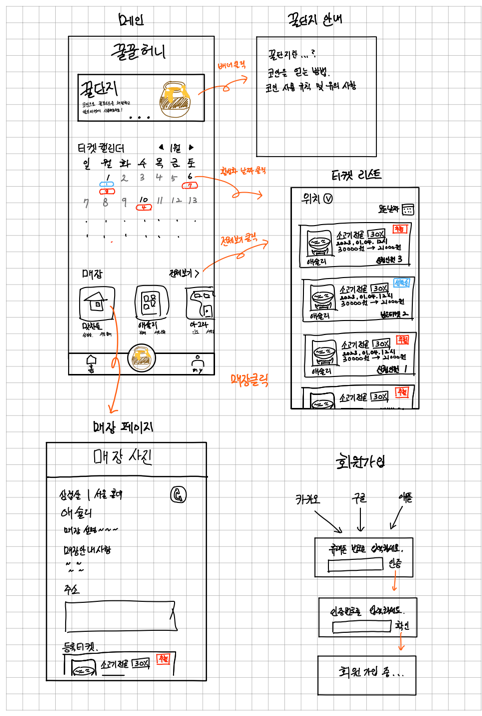 메인
꿀꿀허니
꿀단지
배너 클릭
티켓 캘린더 ◀ 1월 ▶
일 월 화 수 목 금 토
1 2 3 4 5 6
7 8 9 10 11 12 13
활성화 날짜 클릭
매장 전체보기 >
전체보기 클릭
애슐리
홈 my
매장클릭
꿀단지 안내
꿀단지란...?
코인을 얻는 방법.
코인 사용 규칙 및 유의 사항
티켓 리스트
위치
모든날짜
소고기전골 30%
2023.01.04. 12시
30000원 → 21000원
애슐리 신청인원 3
소고기전골 30%
2023.01.04. 12시
30000원 → 21000원
애슐리
소고기전골 30%
2023.01.04. 12시
30000원 → 21000원
애슐리 신청인원 1
소고기전골 30%
매장 페이지
매장 사진
애슐리
매장 설명 ~ ~ ~
매장안내사항
~ ~
~ ~
주소
등록티켓.
소고기전골 30%
회원가입
카카오 구글 애플
휴대폰 번호를 입력하세요.
인증
인증번호를 입력하세요.
확인
회원 가입 중...